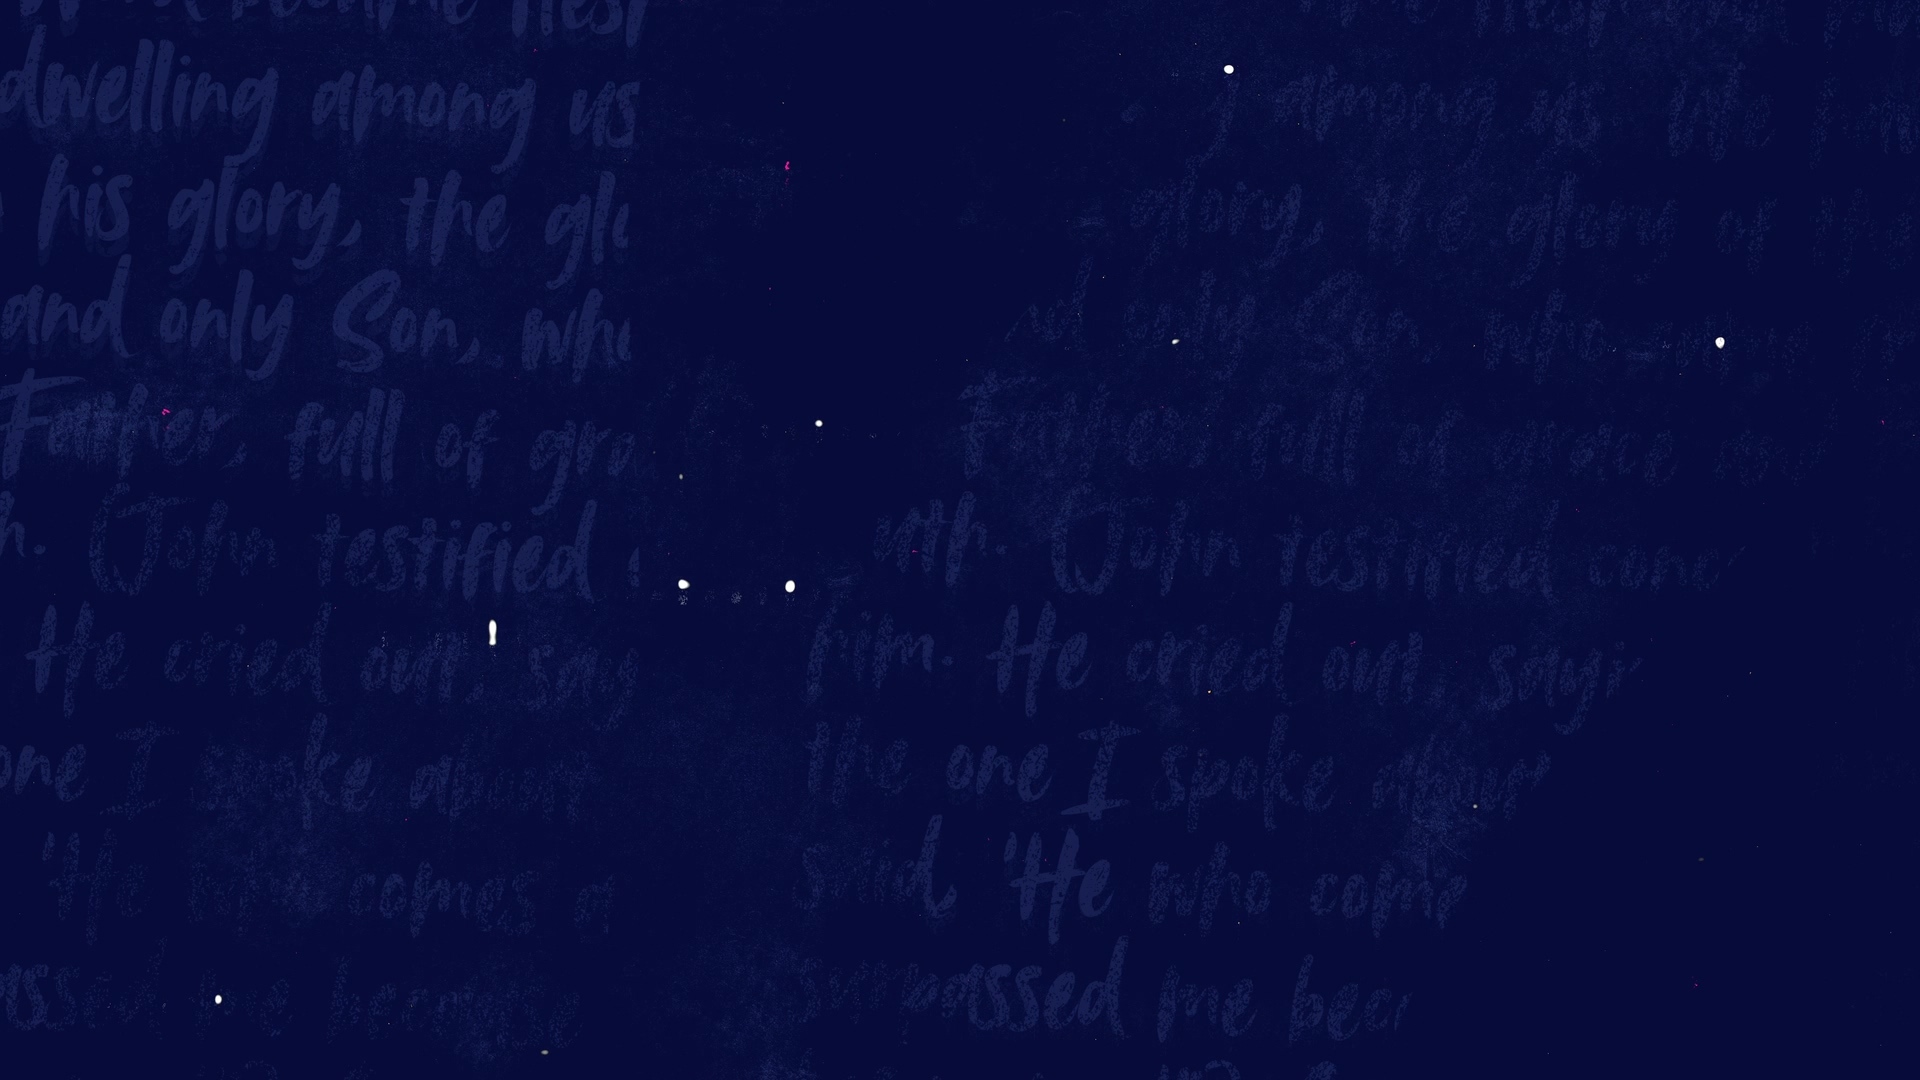 dwelling among us
his glory, the glo
and only Son, who
Father, full of gra
h. John testified
He cried out, say
one I spoke about
'He who comes a
assed me because
among us We
glory, the glory of the
and only Son, who
Father full of grace
uth. John testified conc
him. He cried out, sayi
the one I spoke about
said, 'He who come
surpassed me beca